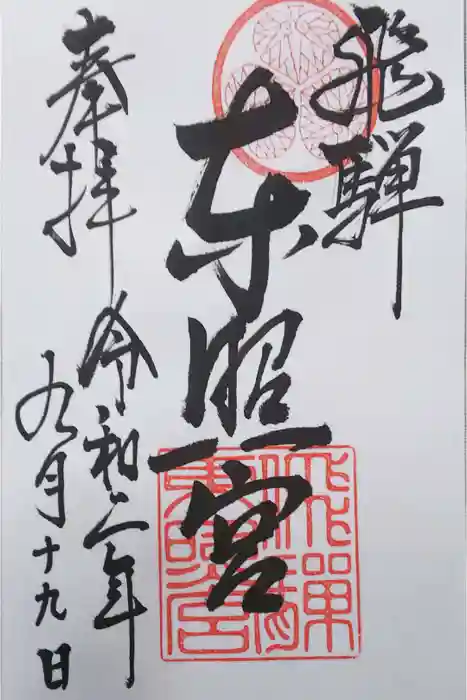 飛騨
東照宮
奉拝
令和二年
九月十九日
飛騨
東照宮